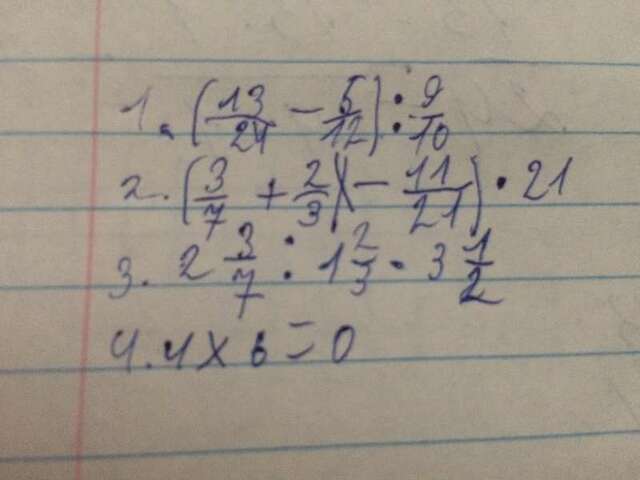 1. (13/24 - 5/12) : 9/10
2. (3/7 + 2/3) - 11/21) · 21
3. 2 3/7 : 1 2/3 · 3 1/2
4. 4 x 6 = 0